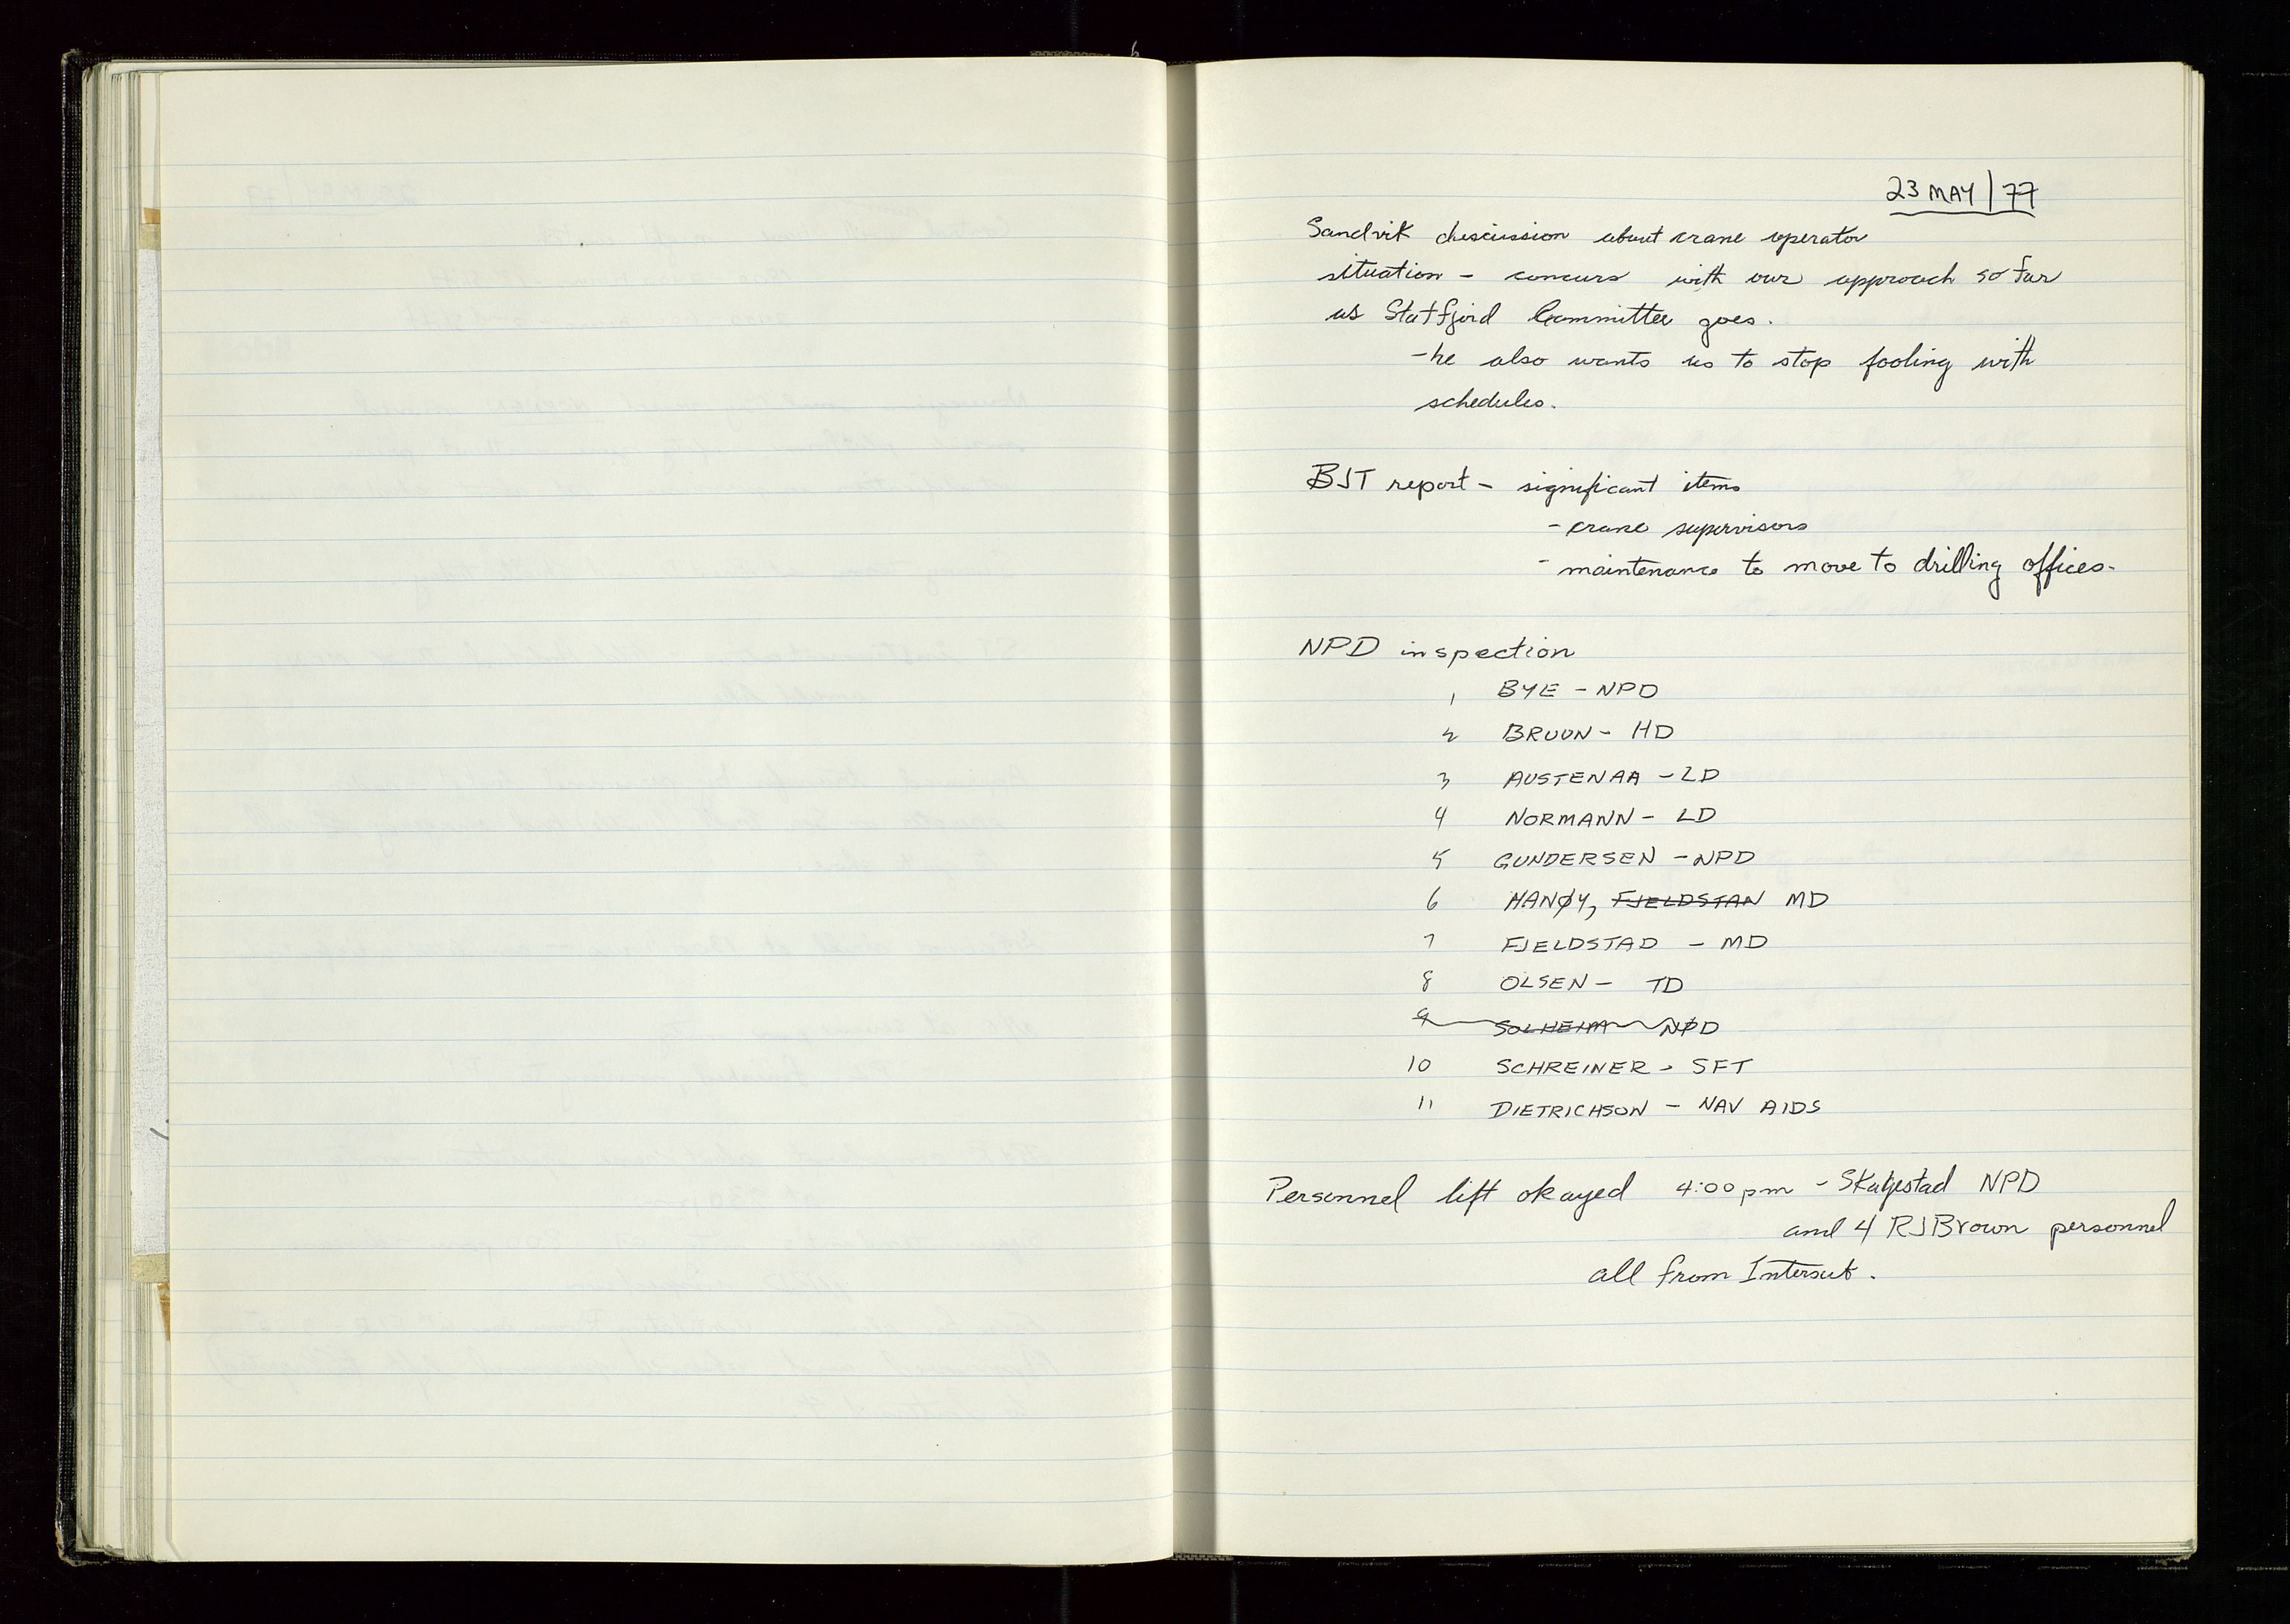 23 MAY/77
Sandvik discussion about crane operator
situation - concurs with our approach so far
as Statfjord Committee goes.
- he also wants us to stop fooling with
schedules.
BJT report - significant items
- crane supervisors
- maintenance to move to drilling offices.
NPD inspection
1 BYE - NPD
2 BRUUN - HD
3 AUSTENAA - LD
4 NORMANN - LD
5 GUNDERSEN - NPD
6 HANØY, FJELDSTAN MD
7 FJELDSTAD - MD
8 OLSEN - TD
9 SOLHEIM NPD
10 SCHREINER - SFT
11 DIETRICHSON - NAV AIDS
Personnel lift okayed 4:00 pm - Skagestad NPD
and 4 RJBrown personnel
all from Intersub.